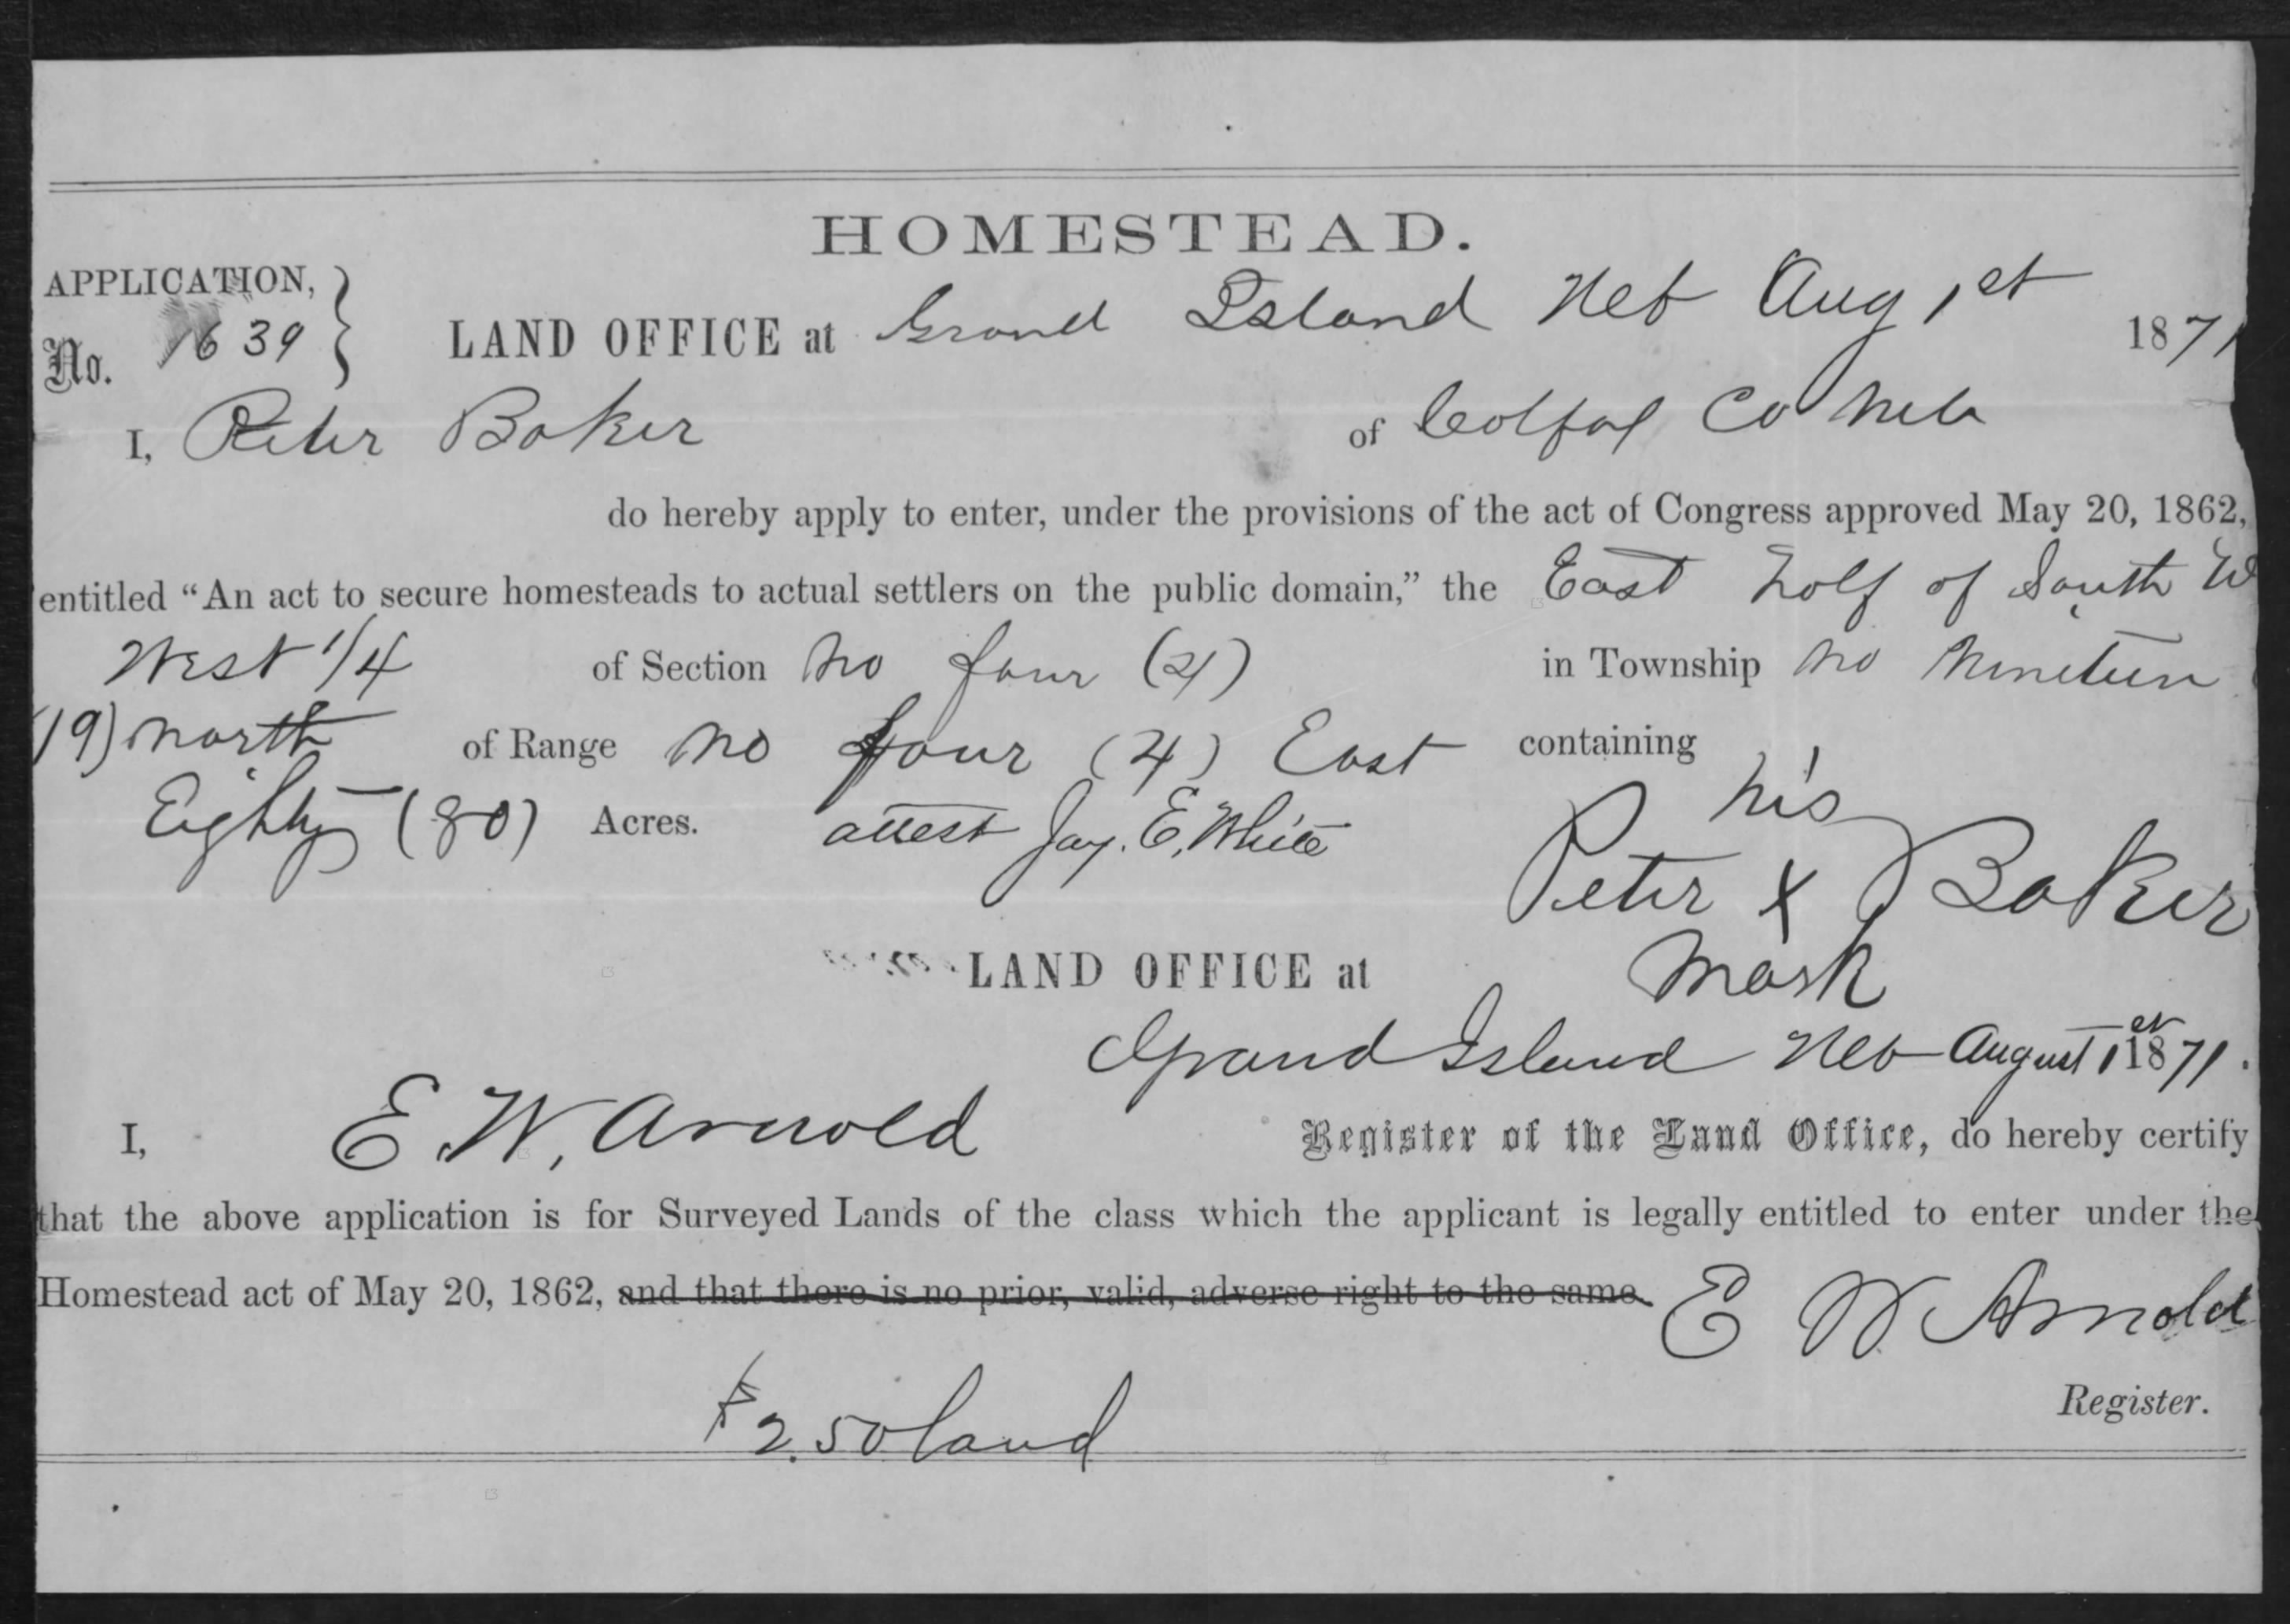 HOMESTEAD.
APPLICATION,
No. 1639
LAND OFFICE at Grand Island Neb Aug 1st 1871
I, Peter Baker of Colfax Co Neb
do hereby apply to enter, under the provisions of the act of Congress approved May 20, 1862,
entitled “An act to secure homesteads to actual settlers on the public domain,” the East half of South W
West 1/4 of Section No four (4) in Township No Nineteen
(19) North of Range No four (4) East containing
Eighty (80) Acres. attest Jay. E. White
his
Peter X Baker
mark
LAND OFFICE at
Grand Island Neb August 1st 1871.
I, E. W. Arnold Register of the Land Office, do hereby certify
that the above application is for Surveyed Lands of the class which the applicant is legally entitled to enter under the
Homestead act of May 20, 1862, and that there is no prior, valid, adverse right to the same. E W Arnold
Register.
$2.50 land